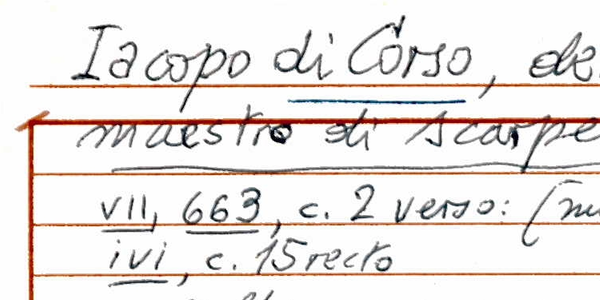 Iacopo di Corso, de
maestro di scarpe
vii, 663, c. 2 verso: (nu
ivi, c. 15 recto